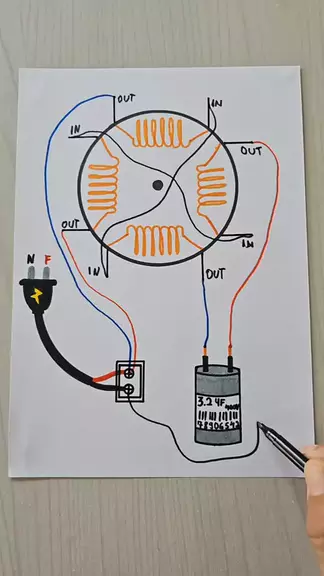 OUT
IN
IN
OUT
OUT
IN
IN
OUT
N F
3.24F